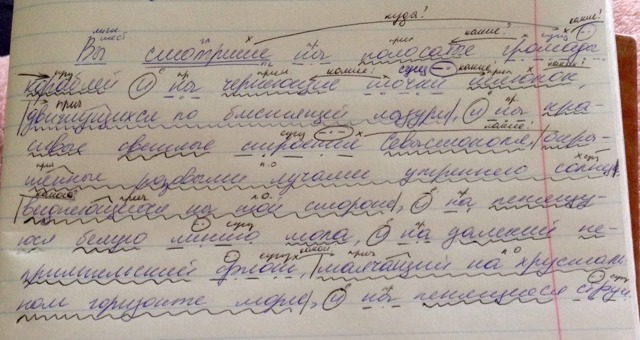 куда?
личн. мест. гл. прил. какие? сущ. какие?
Вы смотрите на полосатые громады
кораблей и на чернеющие точки шлюпок,
движущихся по блистающей лазури, и на кра-
сивые светлые строения Севастополя, окра-
шенные розовыми лучами утреннего солнца,
виднеющиеся на той стороне, и на пенящу-
юся белую линию мола, и на далёкий не-
приятельский флот, маячащий на хрусталь-
ном горизонте моря, и на пенящиеся струи.